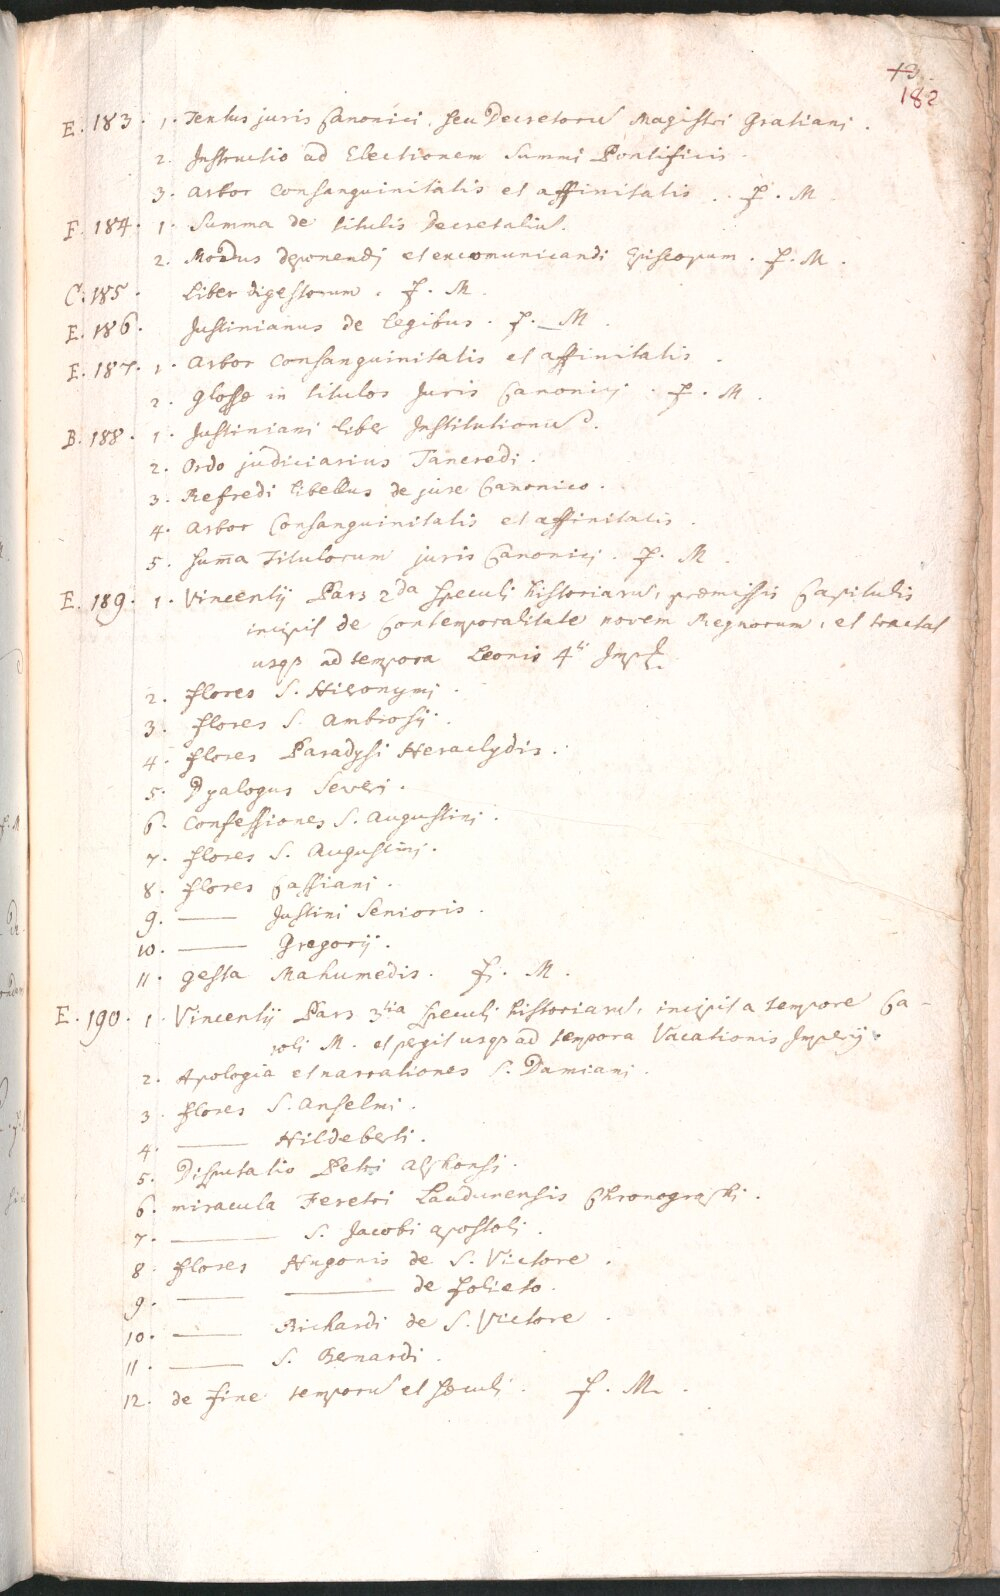 182
E. 183. 1. Textus juris Canonici, seu Decretorū Magistri Gratiani.
2. Instructio ad Electionem Summi Pontificis.
3. Arbor consanguinitatis et affinitatis. f. M.
F. 184. 1. Summa de titulis Decretaliū.
2. Modus deponendj et excomunicandi Episcopum. f. M.
C. 185. Liber digestorum. f. M.
E. 186. Justinianus de legibus. f. M.
E. 187. 1. Arbor consanguinitatis et affinitatis.
2. Glossæ in titulos Juris Canonicj. f. M.
B. 188. 1. Justiniani liber Institutionū.
2. Ordo judiciarius Tancredi.
3. Refredi libellus de jure Canonico.
4. Arbor Consanguinitatis et affinitatis.
5. Sum̃a Titulorum juris Canonicj. f. M.
E. 189. 1. Vincentij Pars 2da Speculj historiarū, præmissis Capitulis
incipit de Contemporalitate novem Regnorum, et tractat
usqȝ ad tempora Leonis 4ti Imp.
2. flores S. Hieronymj.
3. flores S. Ambrosij.
4. flores Paradysi Heraclydis.
5. Dyalogus Severi.
6. Confessiones S. Augustinj.
7. flores S. Augustinj.
8. flores Cassiani.
9. —— Justini Senioris.
10. —— Gregorij.
11. gesta Mahumedis. f. M.
E. 190. 1. Vincentij Pars 3tia Speculj historiarū, incipit a tempore Ca-
roli M. et pergit usqȝ ad tempora Vacationis Imperij.
2. Apologia et narrationes S. Damianj.
3. flores S. Anselmi.
4. —— Hildeberti.
5. Disputatio Petri Alphonsj.
6. miracula Feretri Laudunensis Chronographi.
7. —— S. Jacobi apostoli.
8. flores Hugonis de S. Victore.
9. —— —— de folieto.
10. —— Richardi de S. Victore.
11. —— S. Bernardi.
12. de fine temporū et sæculj. f. M.